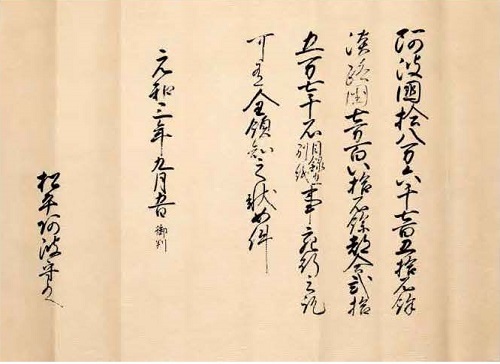 阿波國拾八万六千七百五拾石餘
淡路國七万百八拾石餘都合弐拾
五万七千石目録在別紙事充行之訖
可全領知之状如件
元和三年九月五日御判
松平阿波守とのへ